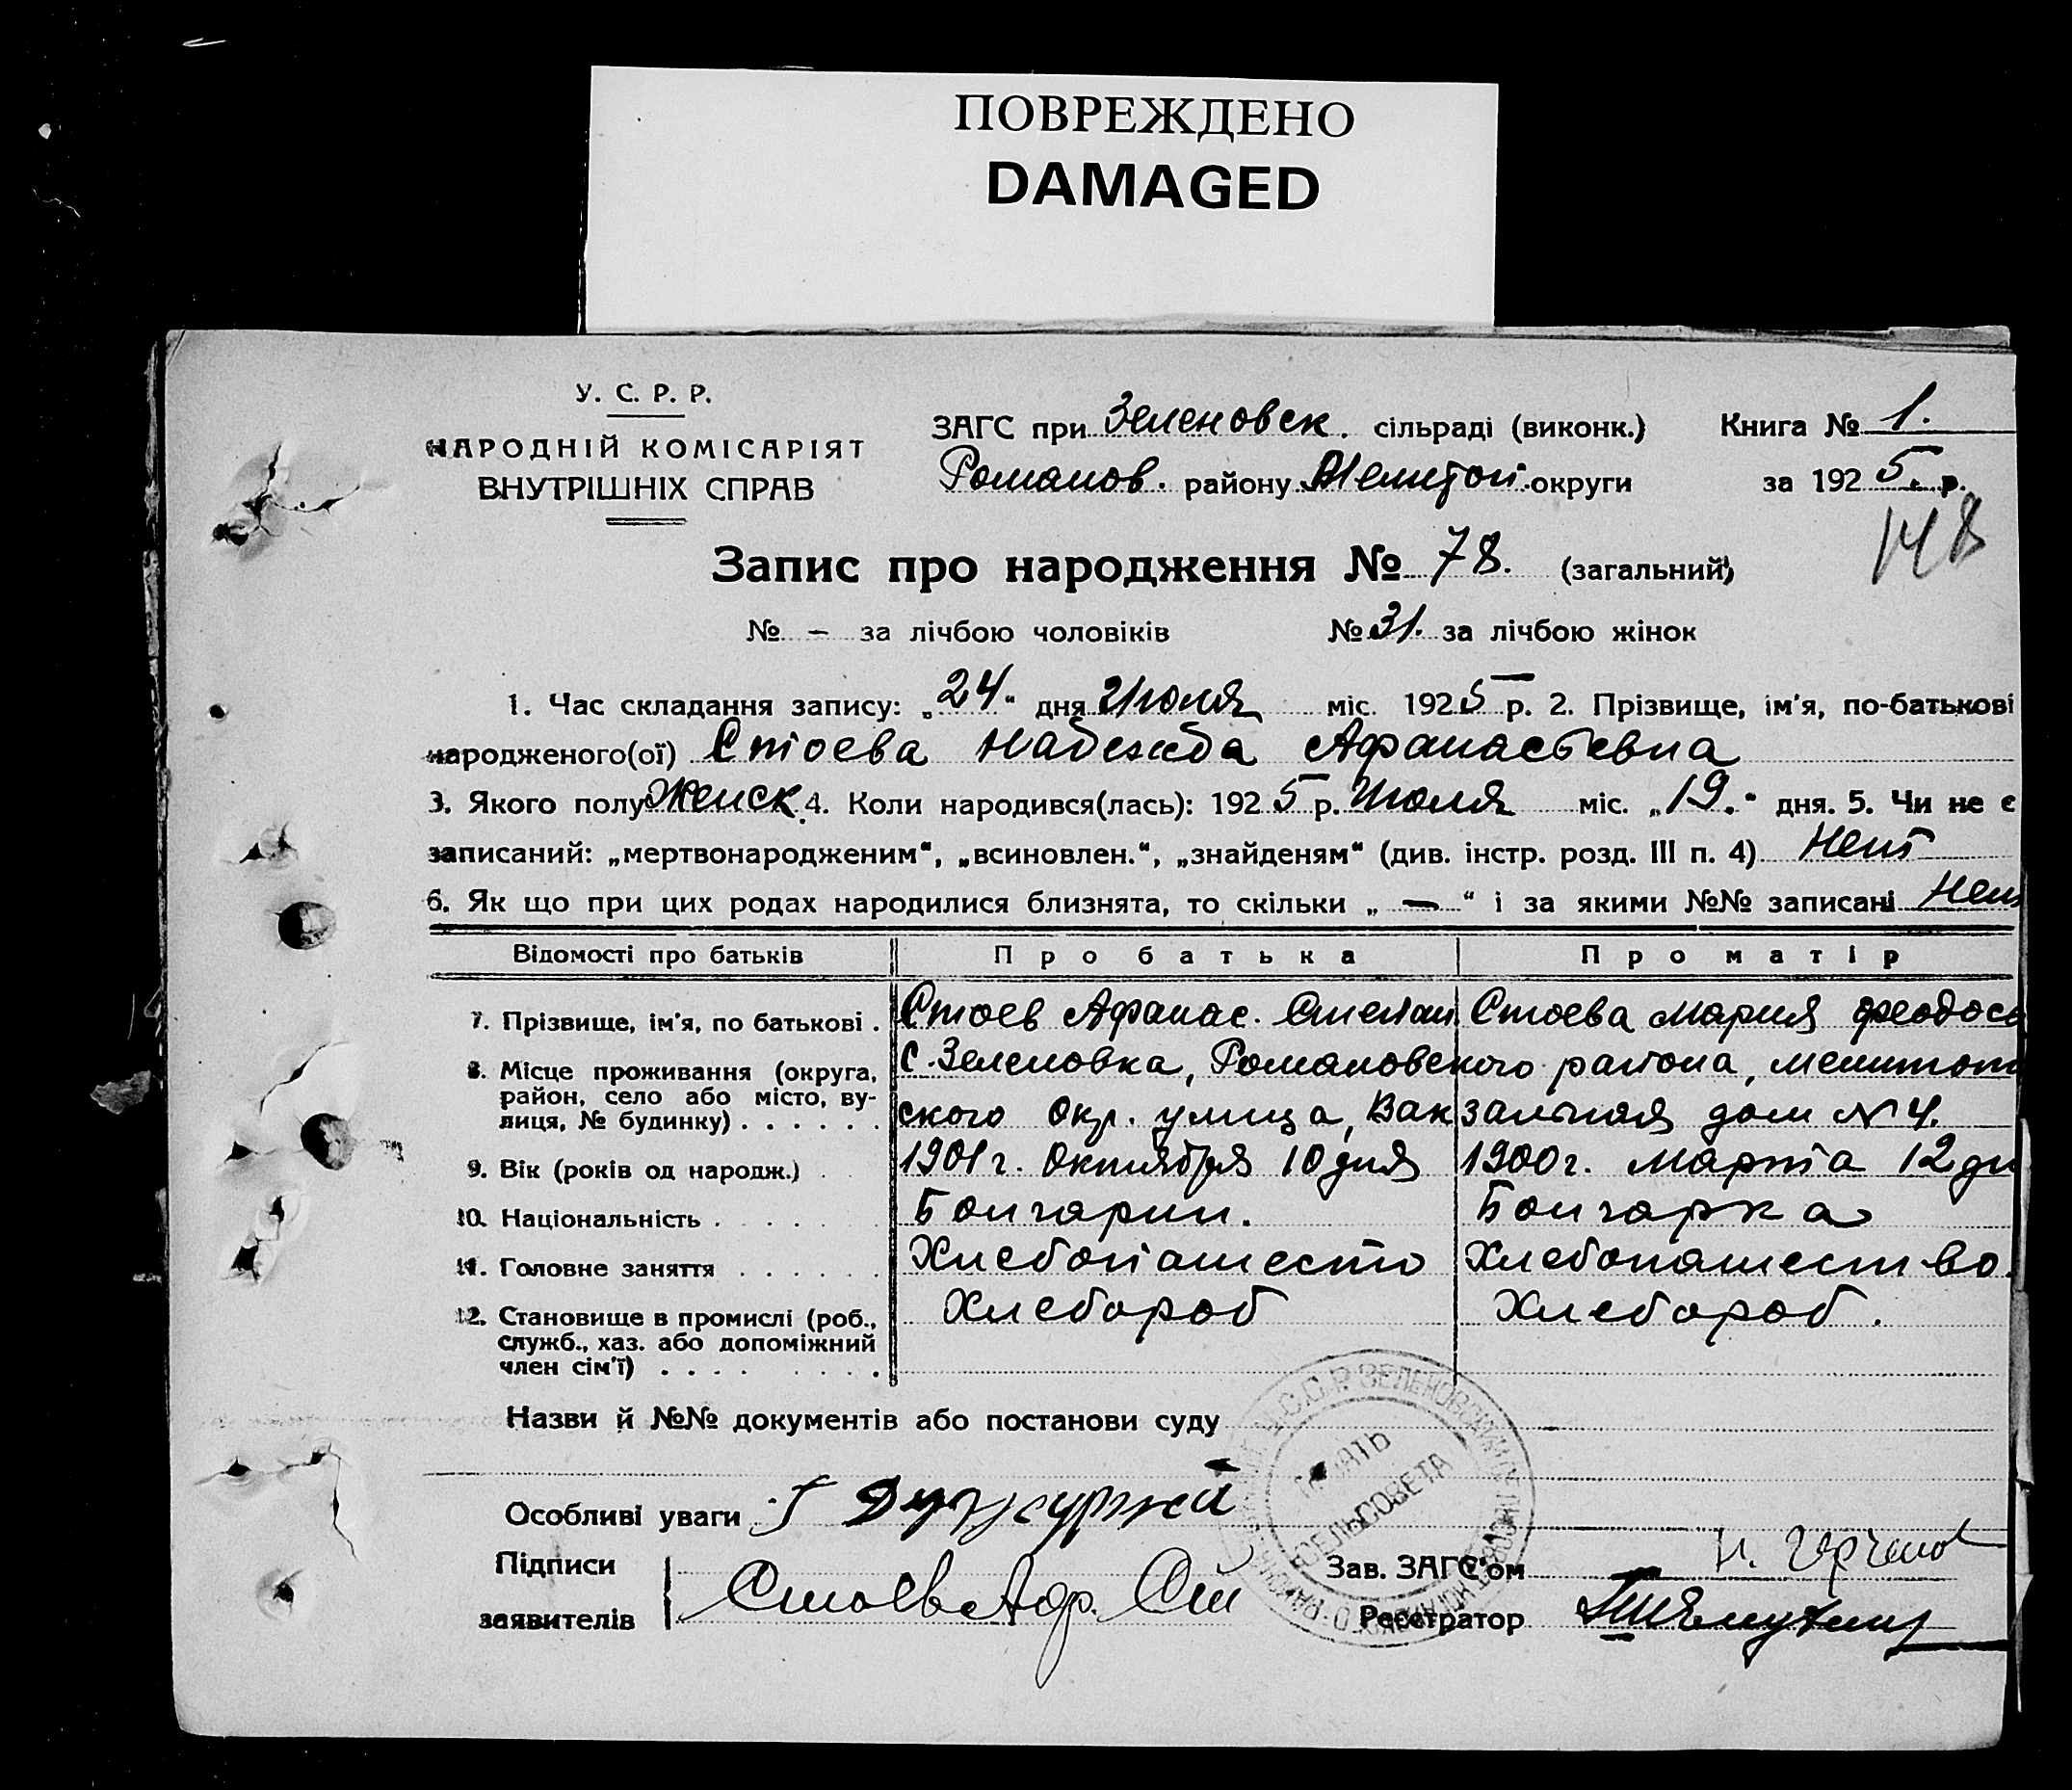 ПОВРЕЖДЕНО
DAMAGED
У. С. Р. Р.
НАРОДНІЙ КОМІСАРІЯТ
ВНУТРІШНІХ СПРАВ
ЗАГС при Зеленовск. сільраді (виконк.) Книга № 1.
Романов. району Мелитоп. округи за 1925 р.
148
Запис про народження № 78. (загальний)
№ – за лічбою чоловіків № 31. за лічбою жінок
1. Час складання запису: „24“ дня Июля міс. 1925 р. 2. Прізвище, ім'я, по-батькові
народженого(ої) Стоева Надежда Афанасьевна
3. Якого полу Женск. 4. Коли народився(лась): 1925 р. Июля міс. „19.“ дня. 5. Чи не є
записаний: „мертвонародженим“, „всиновлен.“, „знайденям“ (див. інстр. розд. III п. 4) Нет
6. Як що при цих родах народилися близнята, то скільки „ — “ і за якими №№ записані Нет
Відомості про батьків Про батька Про матір
7. Прізвище, ім'я, по батькові . Стоев Афанас. Степан Стоева Мария Феодос
8. Місце проживання (округа, район, село або місто, вулиця, № будинку) . . . . . . с. Зеленовка, Романовского района, Мелитоп
ского Окр. улица, Вакзальная дом № 4.
9. Вік (років од народж.) . 1901 г. Октября 10 дня 1900 г. Марта 12 дн
10. Національність . . . . . Болгарин. Болгарка
11. Головне заняття . . . . . . Хлебопашесто Хлебопашество.
12. Становище в промислі (роб., Хлебороб Хлебороб.
служб., хаз. або допоміжний
член сім'ї) . . . . . . . .
Назви й №№ документів або постанови суду
ПЕЧАТЬ
СЕЛЬСОВЕТА
Особливі уваги
Підписи Зав. ЗАГС'ом
заявителів Стоев Аф. Ст Реєстратор